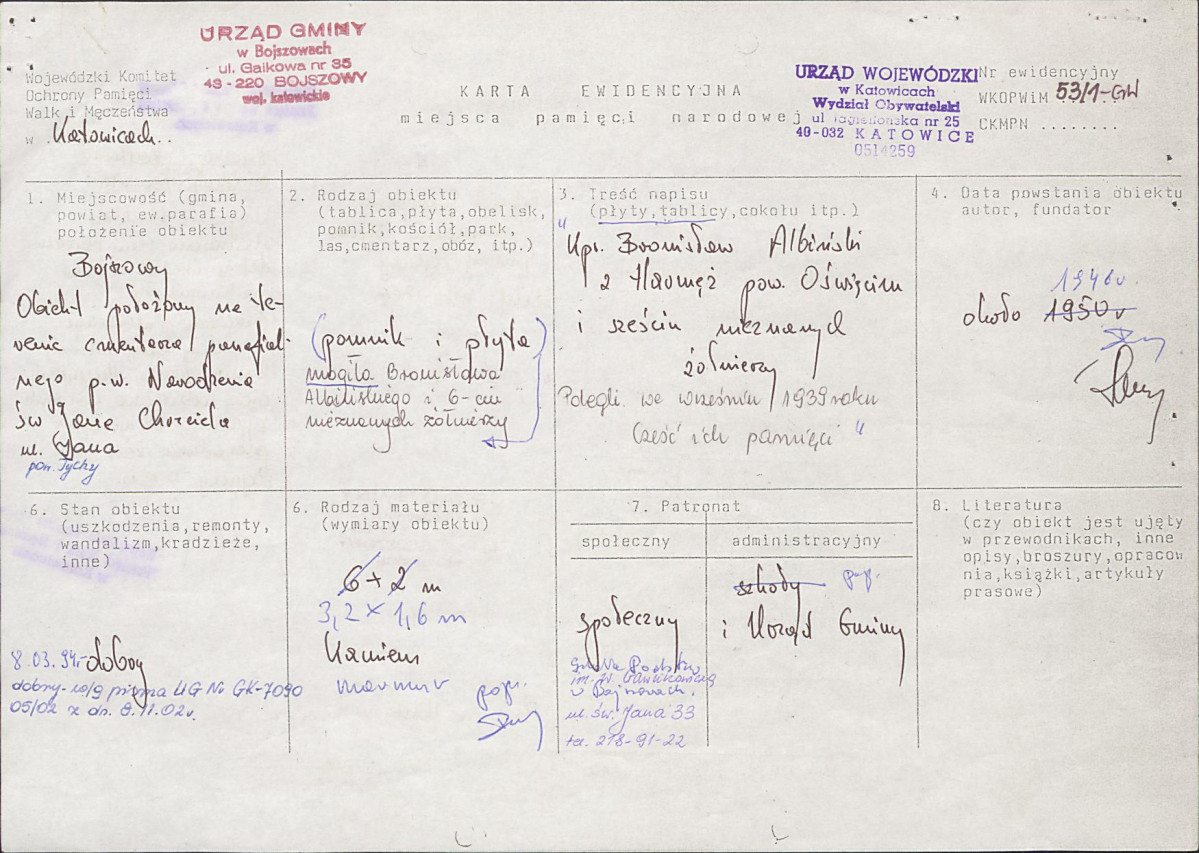 URZĄD GMINY
w Bojszowach
ul. Gaikowa nr 35
43-220 BOJSZOWY
woj. katowickie
Wojewódzki Komitet
Ochrony Pamięci
Walk i Męczeństwa
w Katowicach..
KARTA EWIDENCYJNA
miejsca pamięci narodowej
URZĄD WOJEWÓDZKI
w Katowicach
Wydział Obywatelski
ul Jagiellońska nr 25
40-032 KATOWICE
0514259
Nr ewidencyjny
WKOPWiM 53/1-GW
CKMPN ........
1. Miejscowość (gmina,
powiat, ew.parafia)
położenie obiektu
Bojszowy
Obiekt położony na te-
renie cmentarza parafial-
nego p.w. Narodzenia
św Jana Chrzciciela
ul. Św Jana
pow. Tychy
2. Rodzaj obiektu
(tablica,płyta,obelisk,
pomnik,kościół,park,
las,cmentarz,obóz, itp.)
(pomnik i płyta)
mogiła Bronisława
Albińskiego i 6-ciu
nieznanych żółnierzy
3. Treść napisu
(płyty,tablicy,cokołu itp.)
" Kpr. Bronisław Albiński
z Harmęż pow. Oświęcim
i sześciu nieznanych
żółnierzy
Polegli we wrześniu 1939 roku
Cześć ich pamięci "
4. Data powstania obiektu
autor, fundator
1946r.
około 1950r
6. Stan obiektu
(uszkodzenia,remonty,
wandalizm,kradzieże,
inne)
8.03.94r. dobry
dobry - wg pisma UG Nr GK-7090
05/02 z dn. 8.11.02r.
6. Rodzaj materiału
(wymiary obiektu)
6 x 2 m
3,2 x 1,6 m
Kamień
marmur
popr.
7. Patronat
społeczny
społeczny
Szkoła Podstaw
im. w Bojszowach.
ul. św. Jana 33
tel. 218-91-22
administracyjny
szkoły pop.
i Urząd Gminy
8. Literatura
(czy obiekt jest ujęty
w przewodnikach, inne
opisy,broszury,opracow
nia,książki,artykuły
prasowe)